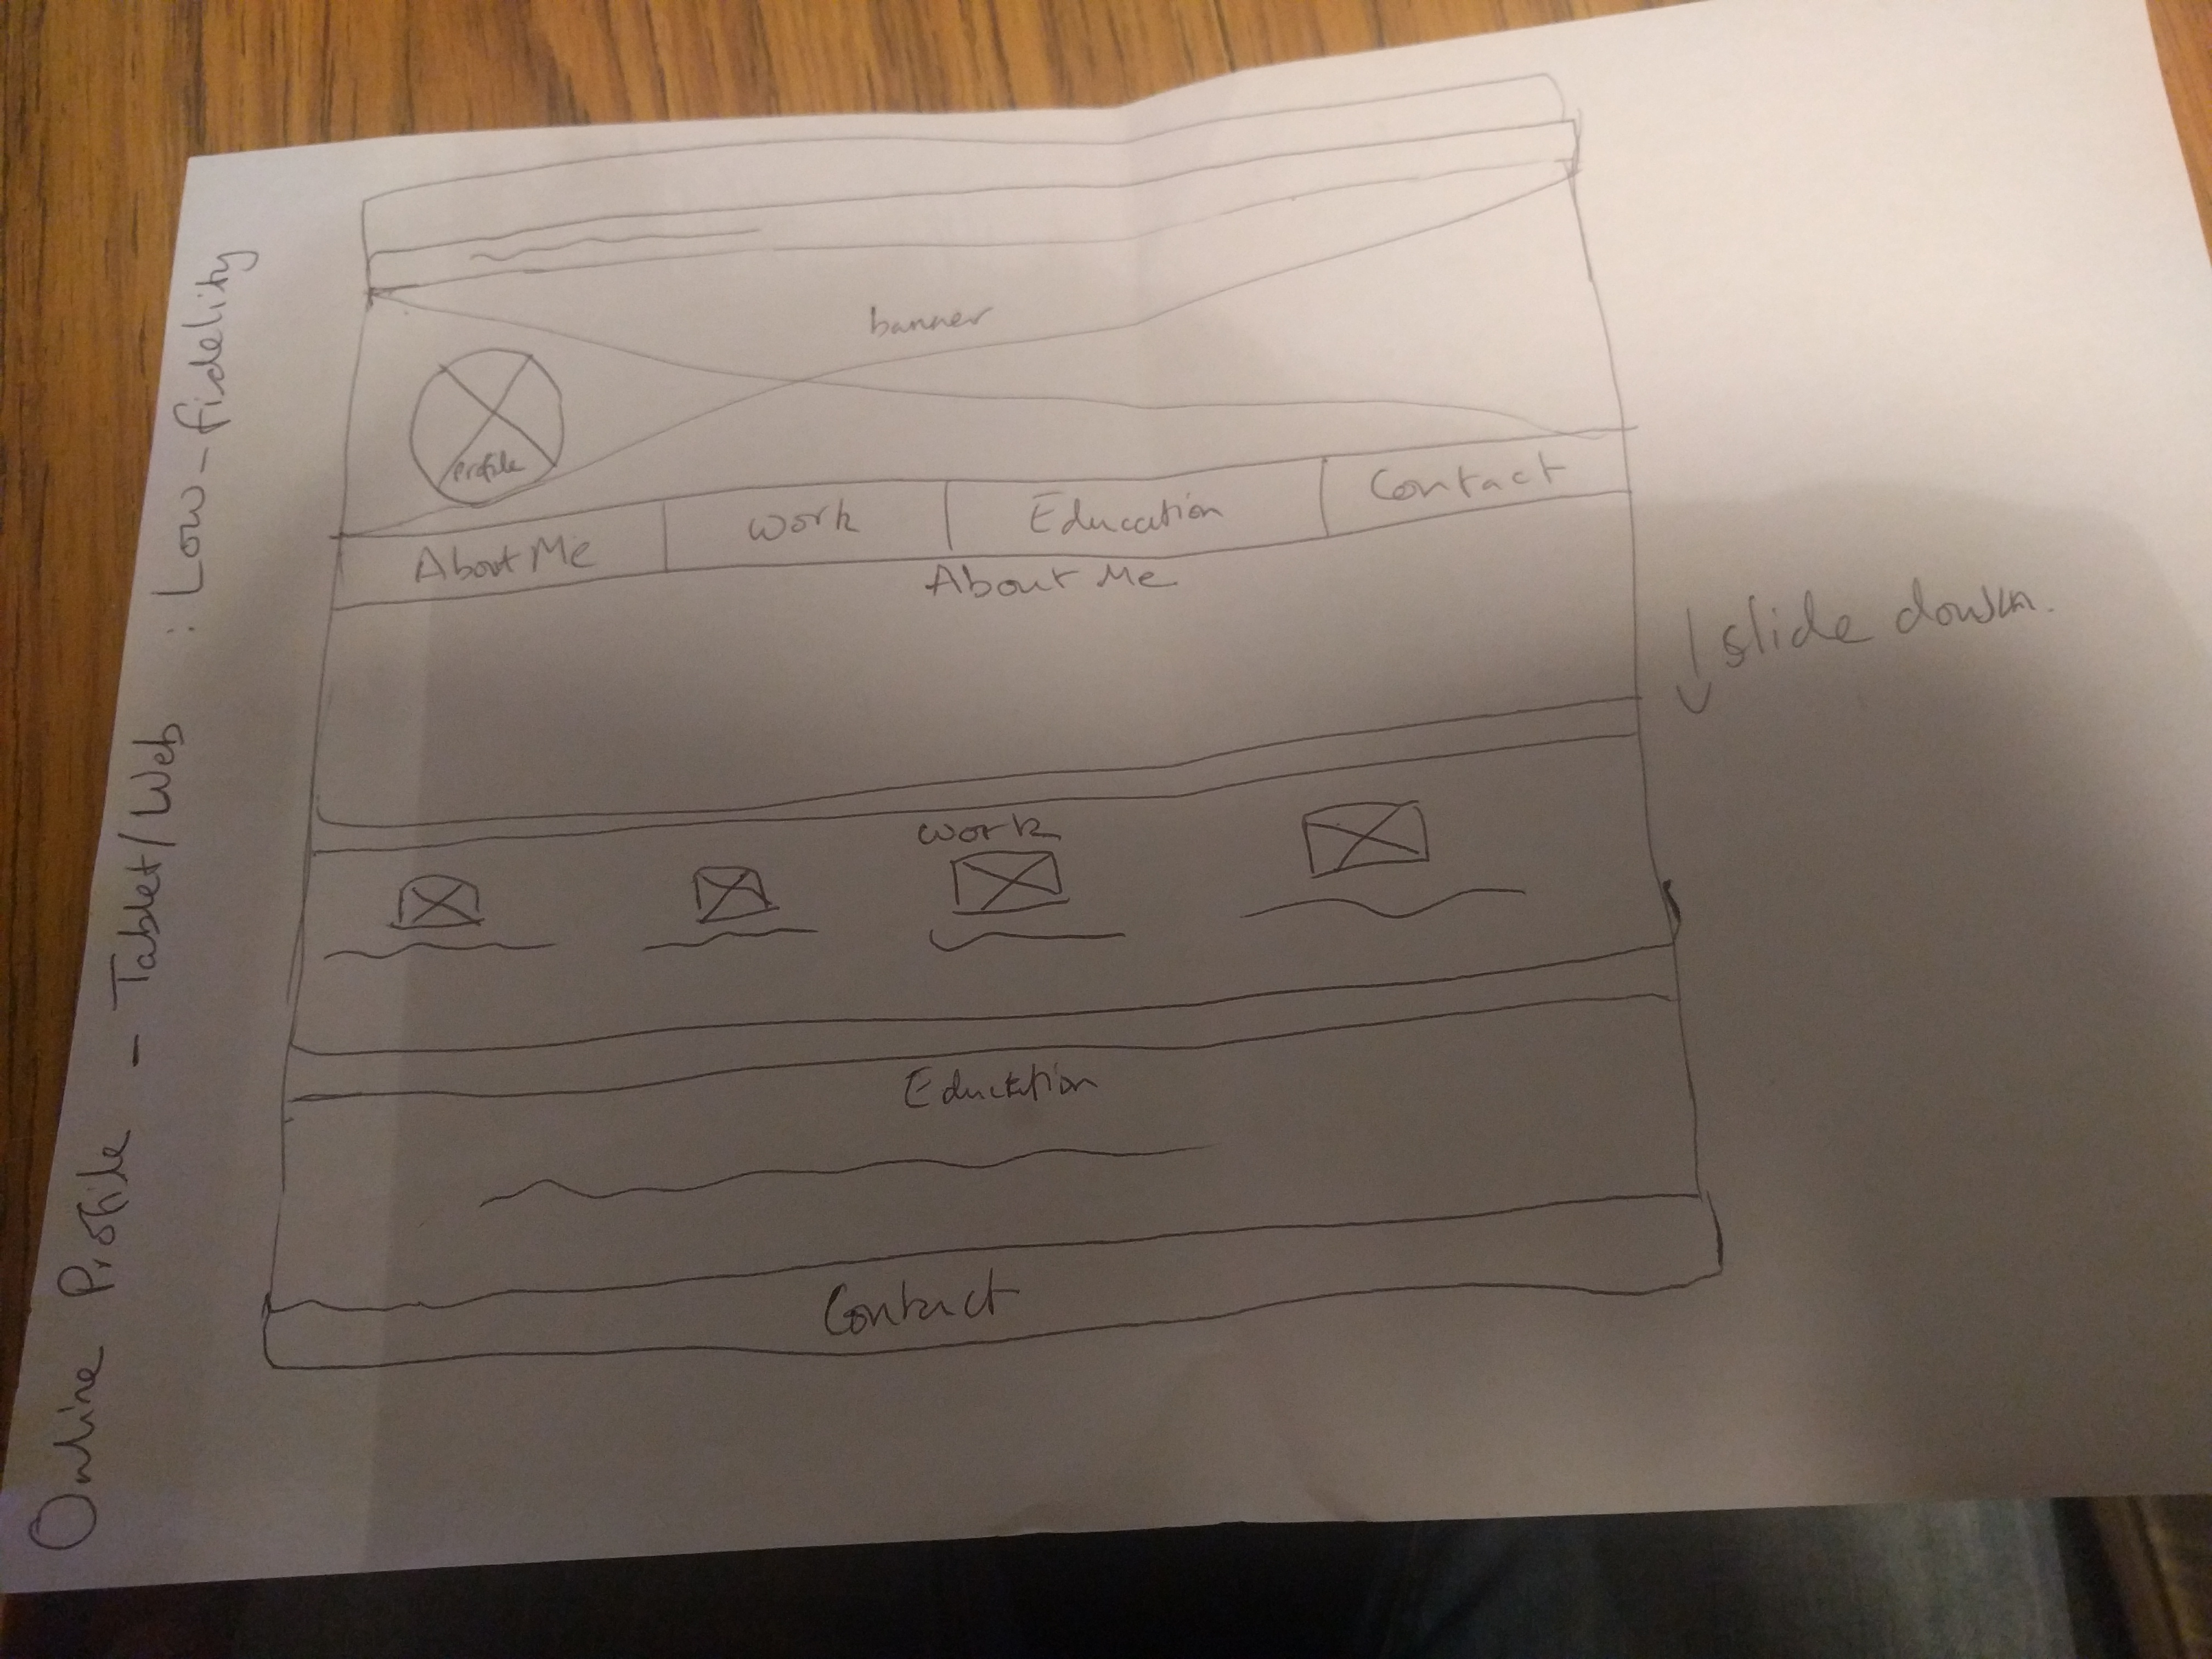 Online Profile - Tablet/Web : Low-fidelity
banner
profile
About Me
work
Education
Contact
About Me
↓ slide down.
work
Education
Contact